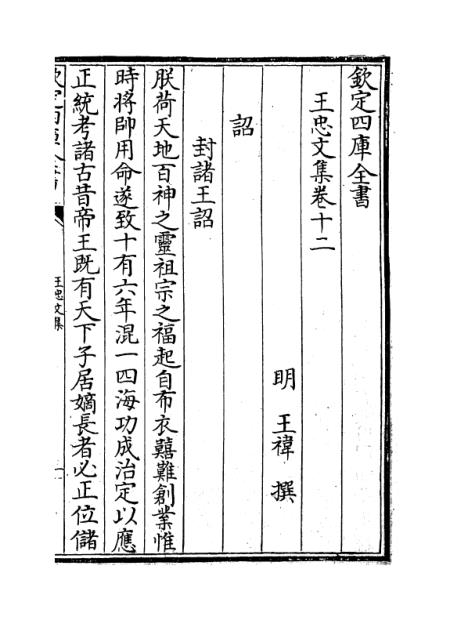 欽定四庫全書
王忠文集卷十二
明 王禕 撰
詔
封諸王詔
朕荷天地百神之靈祖宗之福起自布衣囏難創業惟
時將帥用命遂致十有六年混一四海功成治定以應
正統考諸古昔帝王既有天下子居嫡長者必正位儲
欽定四庫全書
王忠文集